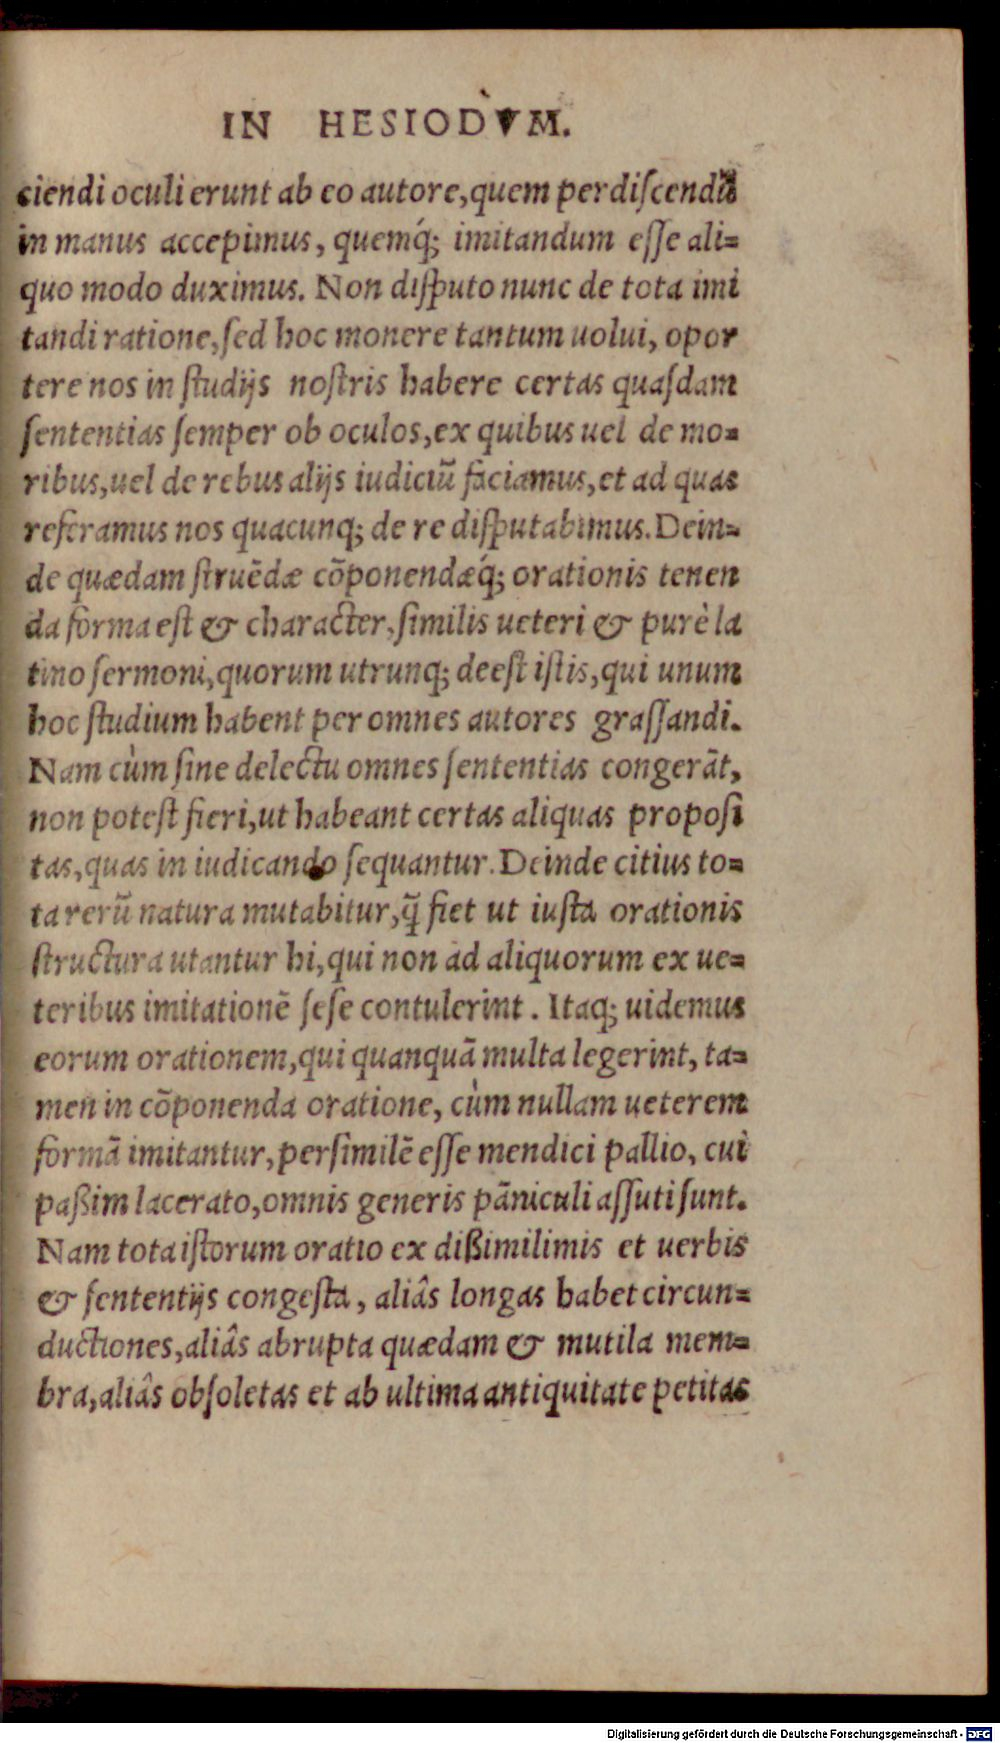 IN HESIODVM.
ciendi oculi erunt ab eo autore,quem perdiſcendū
in manus accepimus, quemq́; imitandum eſſe ali=
quo modo duximus. Non diſputo nunc de tota imi
tandi ratione,ſed hoc monere tantum uolui, opor
tere nos in ſtudijs noſtris habere certas quaſdam
ſententias ſemper ob oculos,ex quibus uel de mo=
ribus,uel de rebus alijs iudiciū faciamus,et ad quas
referamus nos quacunq; de re diſputabimus. Dein=
de quædam ſtruēdæ cōponendæq́; orationis tenen
da forma eſt & character,ſimilis ueteri & purè la
tino ſermoni,quorum utrunq; deeſt iſtis,qui unum
hoc ſtudium habent per omnes autores graſſandi.
Nam cùm ſine delectu omnes ſententias congerāt,
non poteſt fieri,ut habeant certas aliquas propoſi
tas,quas in iudicando ſequantur. Deinde citius to=
ta rerū natura mutabitur,q̃ fiet ut iuſta orationis
ſtructura utantur hi,qui non ad aliquorum ex ue=
teribus imitationē ſeſe contulerint. Itaq; uidemus
eorum orationem,qui quanquā multa legerint, ta=
men in cōponenda oratione, cùm nullam ueterem
formā imitantur,perſimilē eſſe mendici pallio, cui
paßim lacerato,omnis generis pāniculi aſſuti ſunt.
Nam tota iſtorum oratio ex dißimilimis et uerbis
& ſententijs congeſta, aliâs longas habet circun=
ductiones,aliâs abrupta quædam & mutila mem=
bra,aliâs obſoletas et ab ultima antiquitate petitas
Digitalisierung gefördert durch die Deutsche Forschungsgemeinschaft - DFG